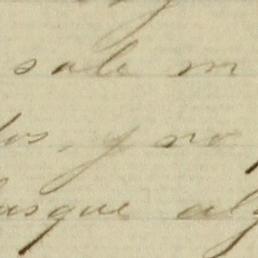 sale m
los, y no
busque alg